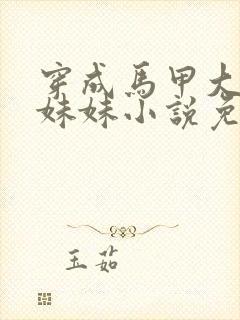 穿成馬甲大
妹妹小說免
玉茹